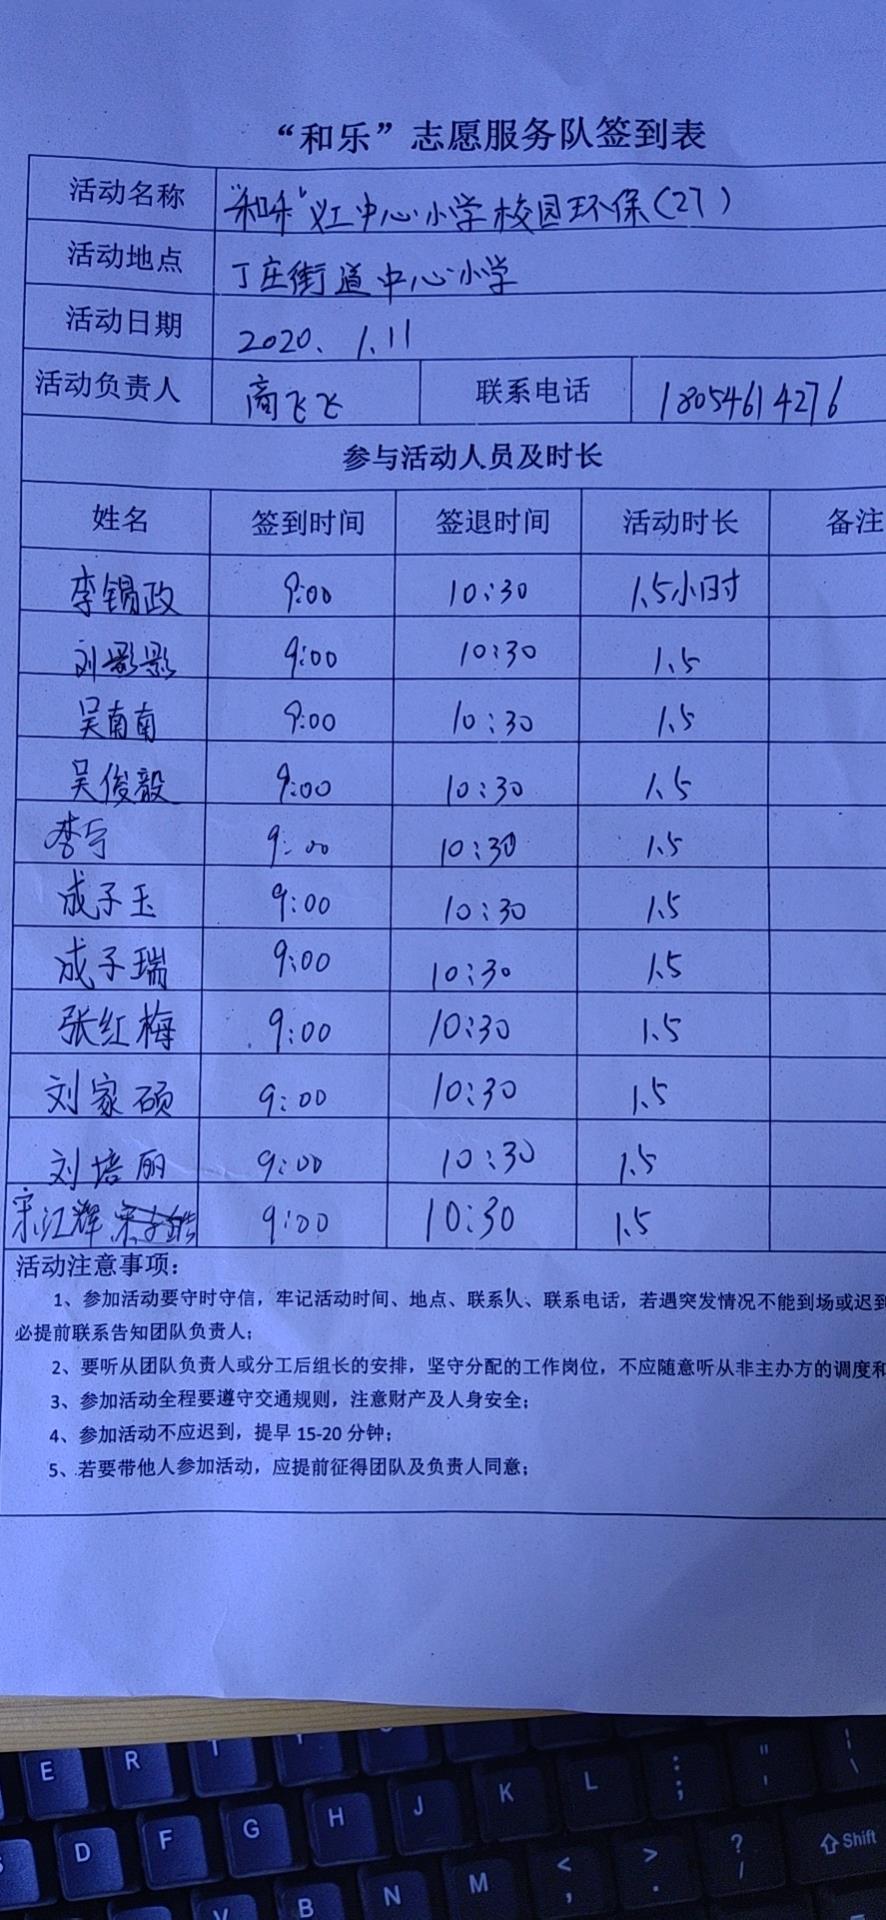 “和乐”志愿服务队签到表
活动名称 “和乐”义工中心小学校园环保(27)
活动地点 丁庄街道中心小学
活动日期 2020、1.11
活动负责人 商飞飞 联系电话 18054614276
参与活动人员及时长
姓名 签到时间 签退时间 活动时长 备注
李锡政 9:00 10:30 1.5小时
刘影影 9:00 10:30 1.5
吴南南 9:00 10:30 1.5
吴俊毅 9:00 10:30 1.5
9:00 10:30 1.5
成子玉 9:00 10:30 1.5
成子瑞 9:00 10:30 1.5
张红梅 9:00 10:30 1.5
刘家硕 9:00 10:30 1.5
刘培丽 9:00 10:30 1.5
宋江辉 9:00 10:30 1.5
活动注意事项：
1、参加活动要守时守信，牢记活动时间、地点、联系人、联系电话，若遇突发情况不能到场或迟到
必提前联系告知团队负责人；
2、要听从团队负责人或分工后组长的安排，坚守分配的工作岗位，不应随意听从非主办方的调度和
3、参加活动全程要遵守交通规则，注意财产及人身安全；
4、参加活动不应迟到，提早 15-20 分钟；
5、若要带他人参加活动，应提前征得团队及负责人同意；
E R T
D F G H J K L : ; " '
V B N M < , > . ? / Shift